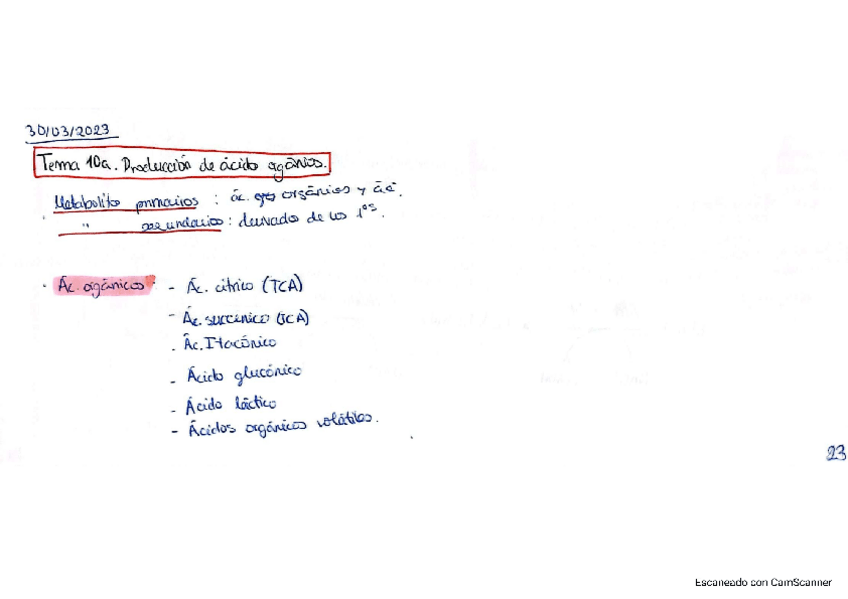 30/03/2023
Tema 10a. Producción de ácido orgánios.
Metabolito primarios : ác. orgánicos y
" secundarios : derivado de los 1os.
· Ác. orgánicos - Ác. cítrico (TCA)
- Ác. succínico (TCA)
- Ác. Itacónico
- Ácido glucónico
- Ácido láctico
- Ácidos orgánicos volátiles.
23
Escaneado con CamScanner